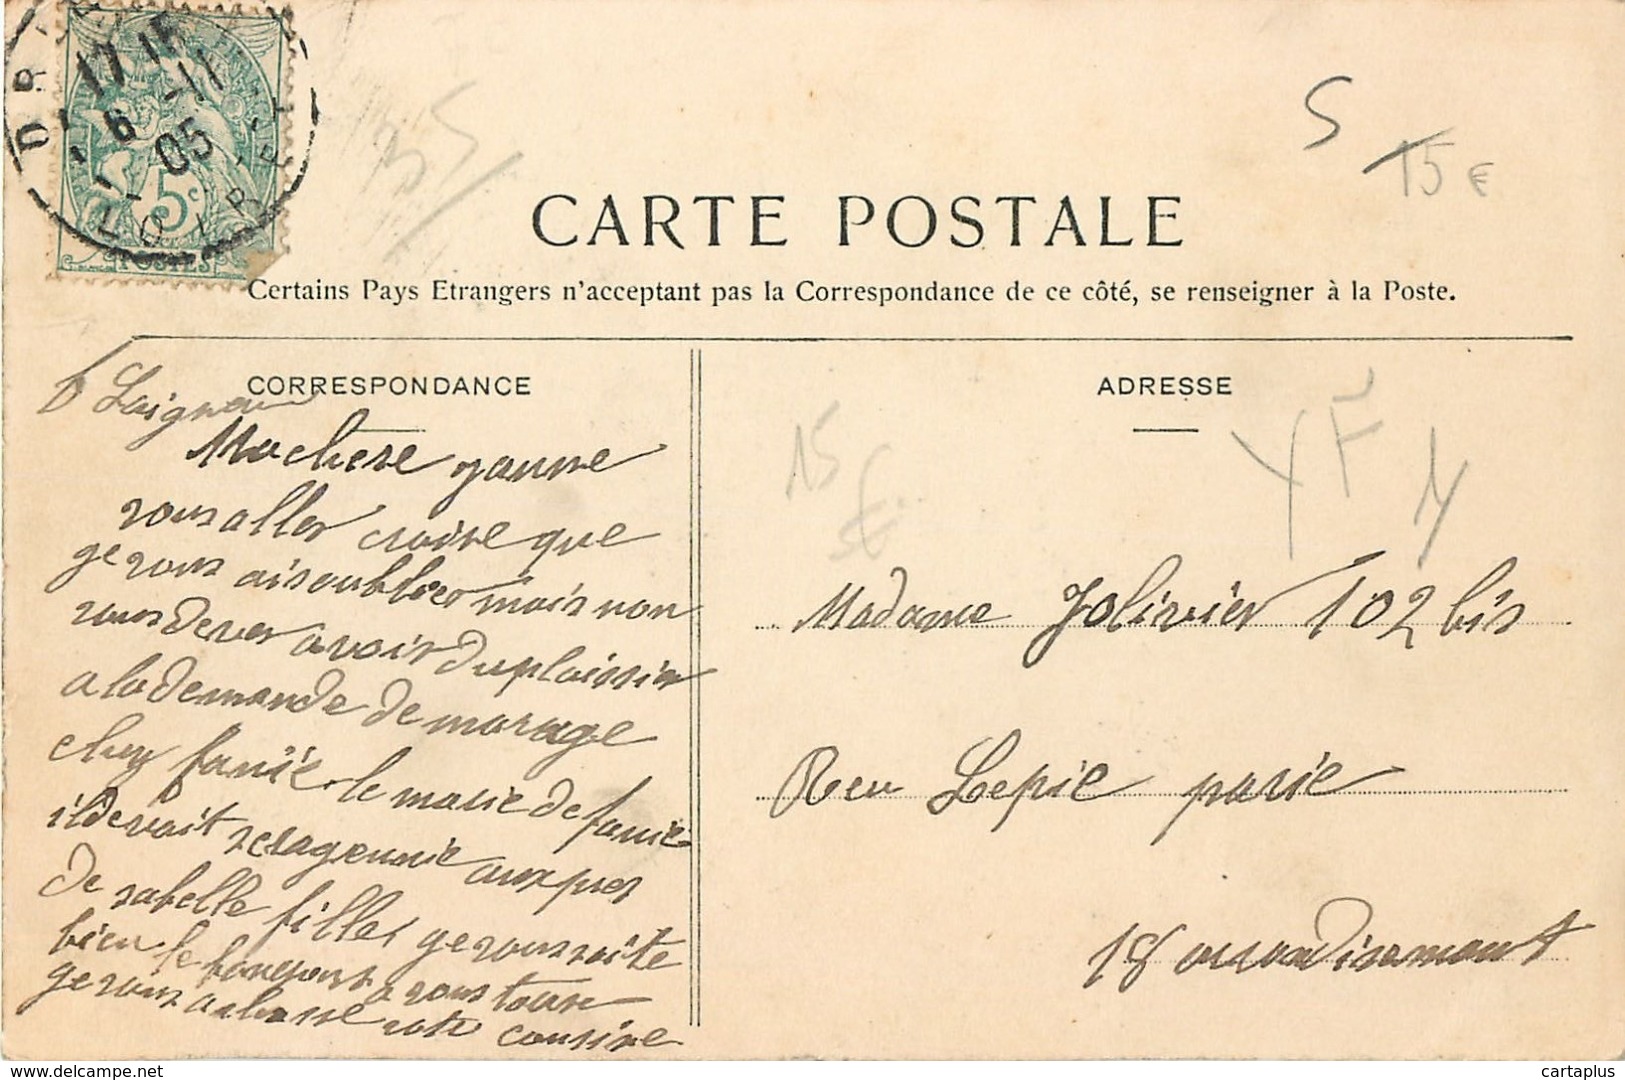 17 15
6 -11
05
LOIRET
5c
POSTES
S
15 €
CARTE POSTALE
Certains Pays Etrangers n'acceptant pas la Correspondance de ce côté, se renseigner à la Poste.
CORRESPONDANCE
Machere ganne
vous aller croire que
ge vous aisoublier mais non
vous dever avoir du plaissir
a la demande de marage
chez fanie le marie de fanie
il devait
de sa belle filles ge vous
bien le bongour a vous tous
ge vous votre cousine
ADRESSE
15
€
Y F
Madame Jolivier 102 bis
Reu Lepic parie
18 arrondisemant
delcampe.net
cartaplus